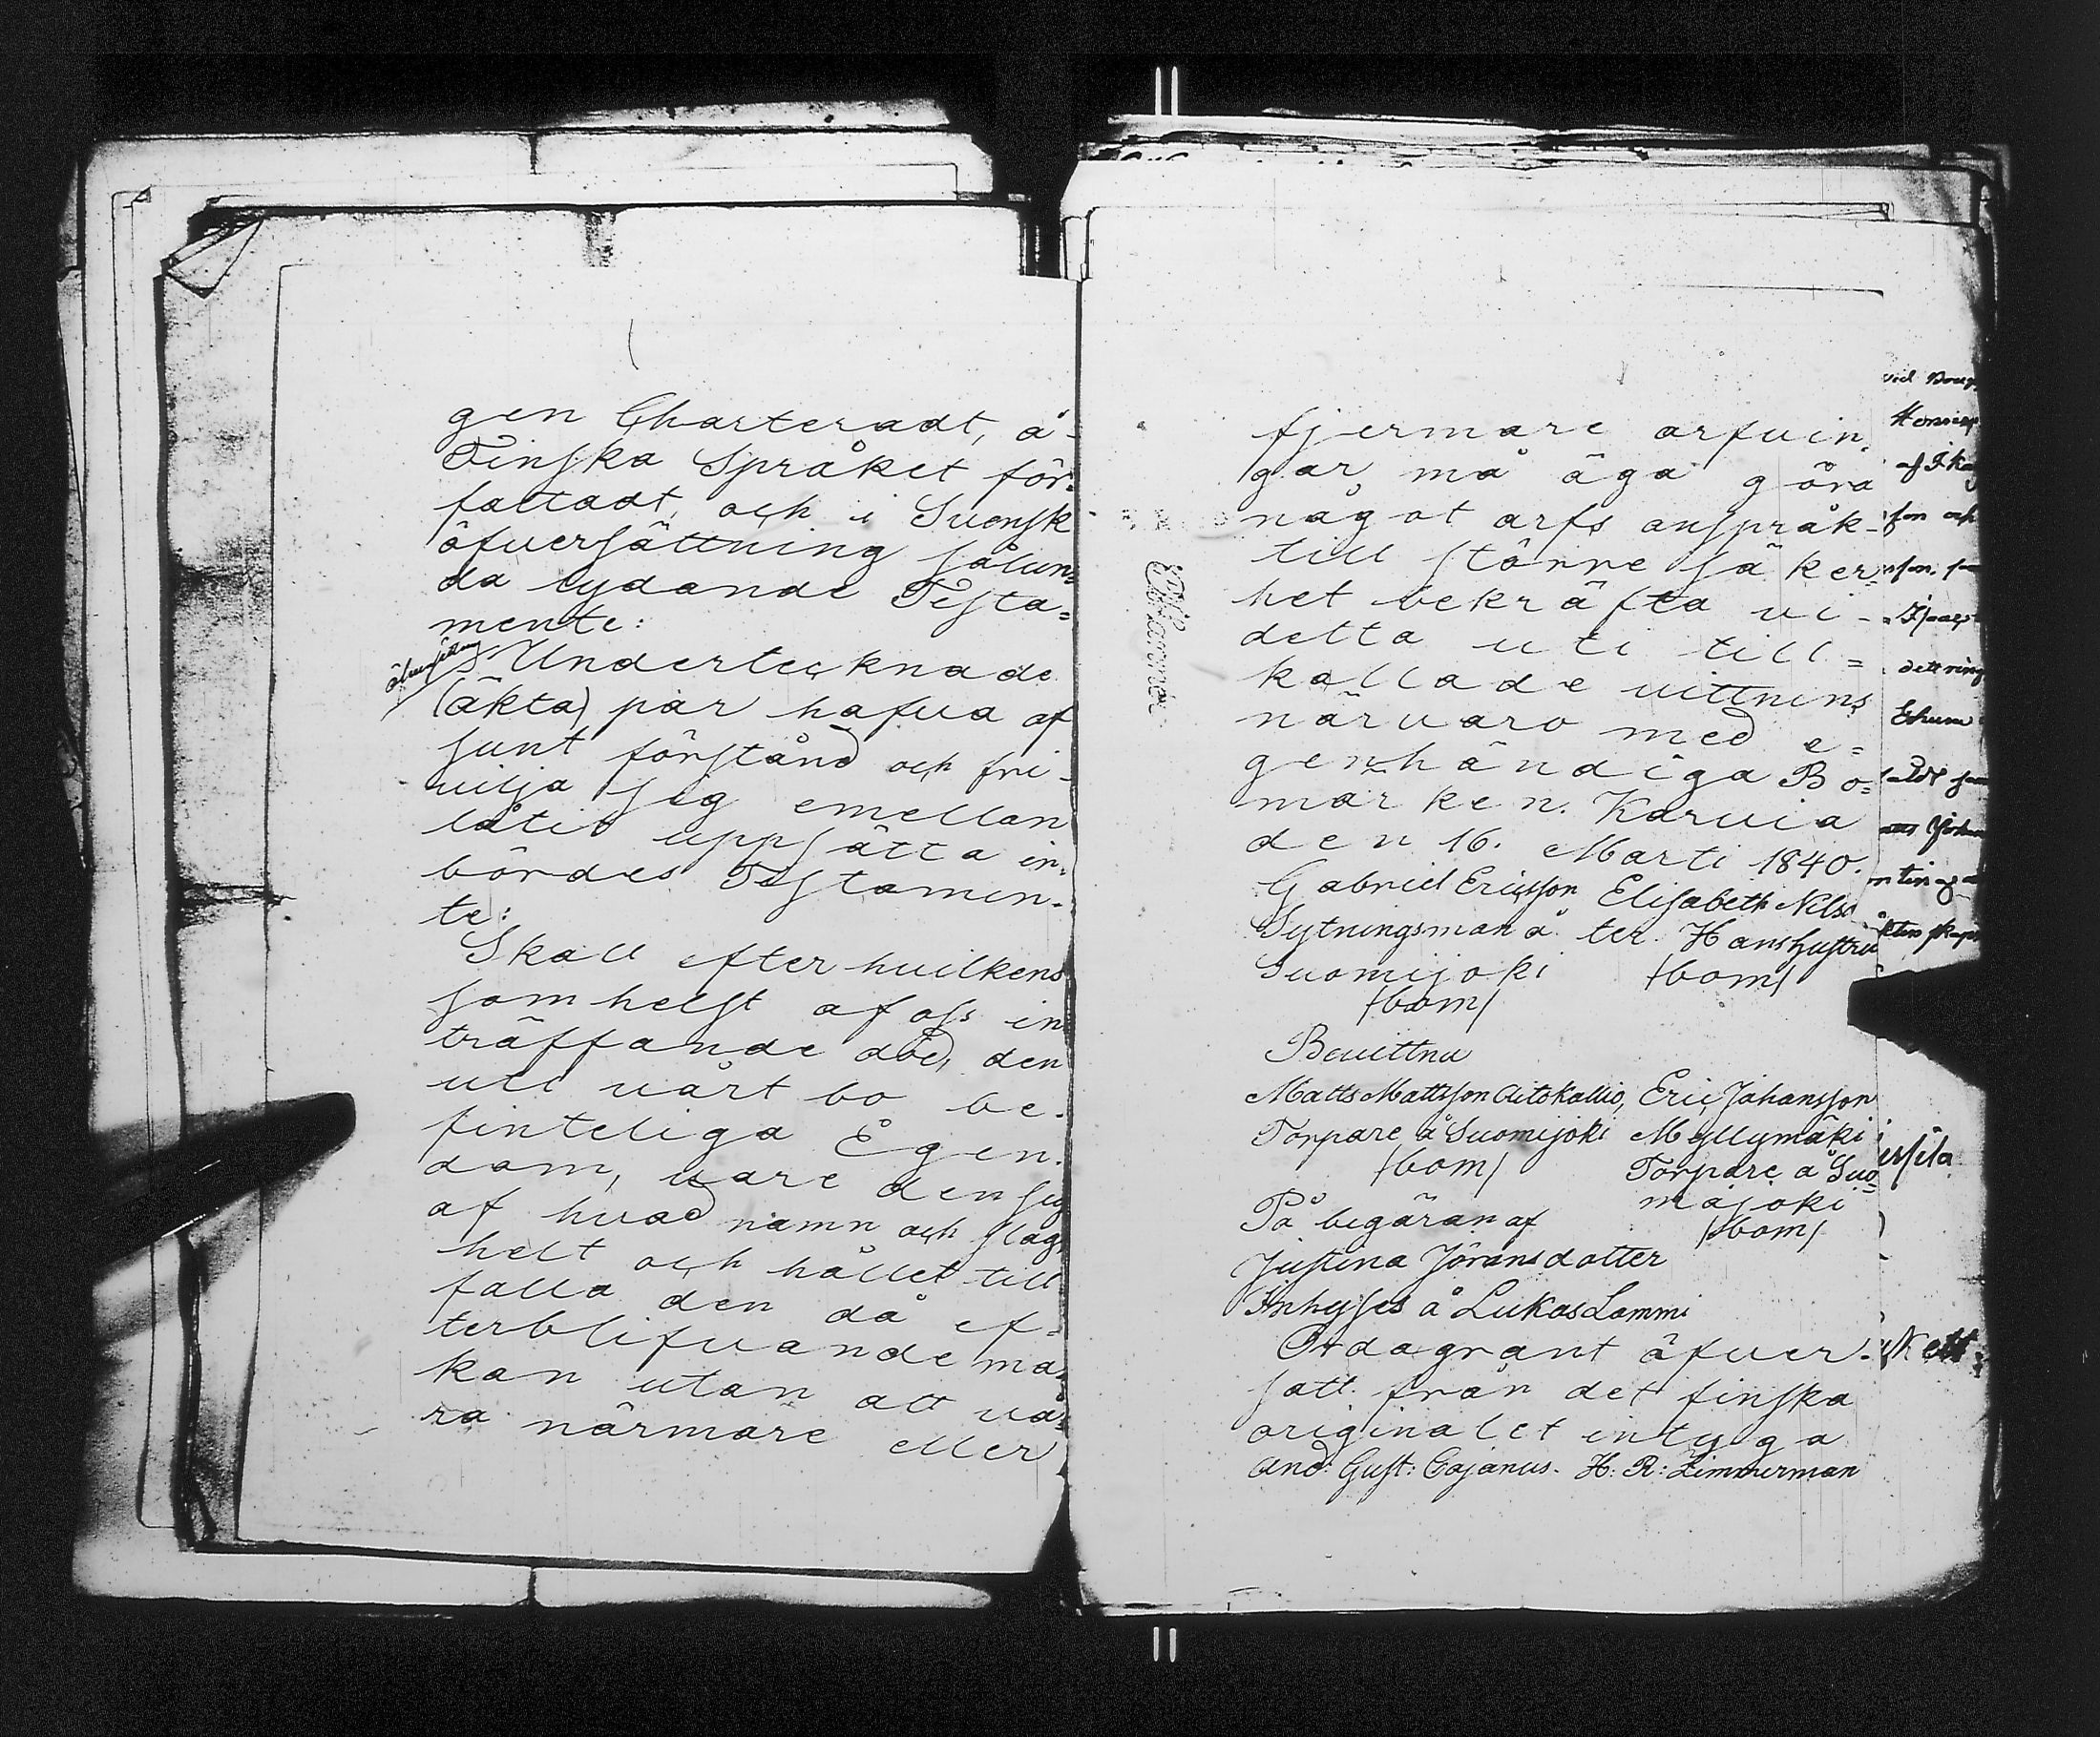 gen Charteradt, å
Finska Språket för=
fattadt, och i Svensk
öfversättning sålun=
da lydande Testa=
mente:
Undertecknade
(äkta) par hafva af
sunt förstånd och fri-
vilja sig emellan
låtit uppsätta in-
bördes Testamen-
te:
Skall efter hvilkens
som helst af oss in
träffande död, den
uti vårt bo be-
finteliga Egen-
dom, vare den sig
af hvad namn och slag
helt och hållet till
falla den då ef=
terblifvande ma=
kan utan att vå=
ra närmare eller
fjermare arfvin-
gar må äga göra
något arfs anspråk-
till större säker=
het bekräfta vi-
detta uti till=
kallade vittnens
närvaro med e=
genhändiga Bo=
märken. Karvia
den 16. Marti 1840.
Gabriel Ericsson Elisabeth Nils
Sytningsman å ter. Hans hustru
Suomijoki /bom/
/bom/
Bevittna
Matts Mattsson Aitokallio, Eric Johansson
Torpare å Suomijoki Myllymäki
/bom/ Torpare å Suo=
På begäran af majoki
/bom/
Justina Jöransdotter
Inhyses å Lukas Lammi
Ordagrant öfver-
satt från det finska
originalet intyga
And: Gust: Cajanus. H: R: Zimmerman